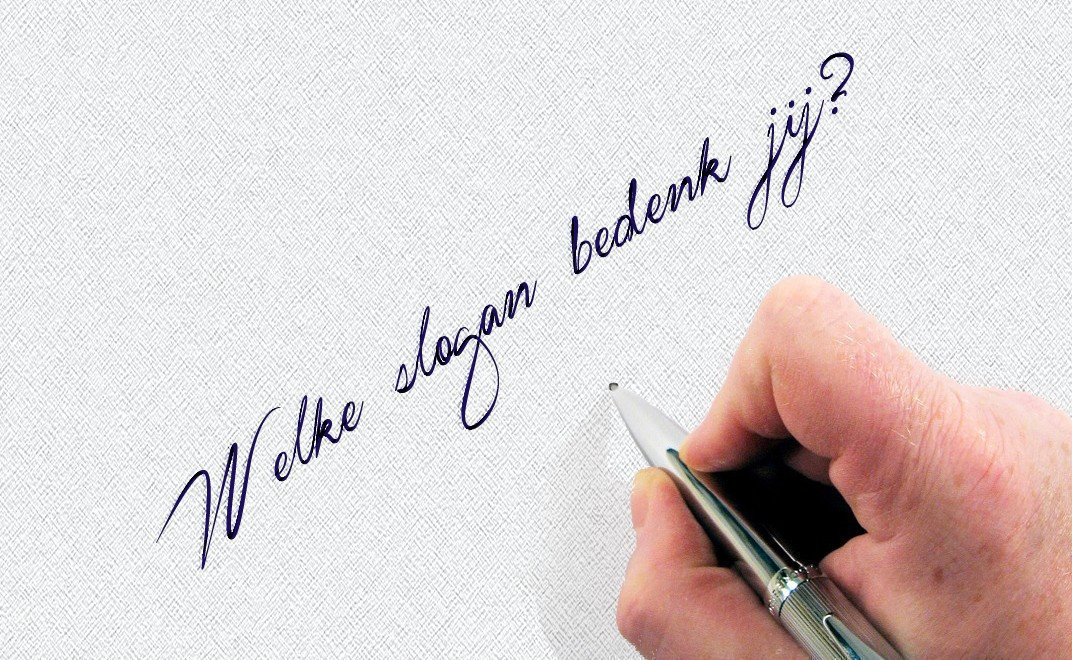 Welke slogan bedenk jij?